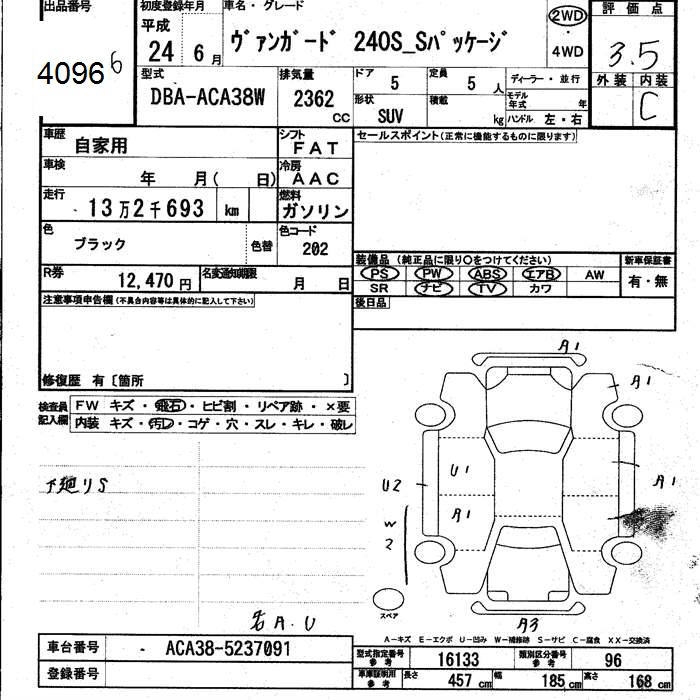 出品番号
初度登録年月
車名・グレード
評価点
平成
2WD
24 6 月
ヴァンガード 240S_Sパッケージ
・
4WD
3.5
40966
型式
排気量
ドア 5
定員 5 人
ディーラー・並行
外装 内装
DBA-ACA38W
2362 CC
形状 SUV
積載 kg
モデル年式 年
ハンドル 左・右
C
車歴
自家用
シフト
FAT
セールスポイント(正常に機能するものに限ります)
車検
年 月( 日)
冷房
AAC
走行
13万2千693 km
燃料
ガソリン
色
ブラック
色替
色コード
202
装備品(純正品に限り○をつけてください)
新車保証書
PS PW ABS エアB AW
有・無
SR ナビ TV カワ
R券
12,470円
名変通知期限
月 日
後日品
注意事項申告欄(不具合内容等は具体的に記入して下さい)
修復歴 有〔箇所 〕
検査員記入欄
FW キズ・飛石・ヒビ割・リペア跡・×要
内装 キズ・汚レ・コゲ・穴・スレ・キレ・破レ
下廻りS
A1
A1
U1
U2
A1
A1
W2
スペア
A3
A.U
A-キズ E-エクボ U-凹み W-補修跡 S-サビ C-腐食 XX-交換済
車台番号
ACA38-5237091
登録番号
型式指定番号参考
16133
類別区分番号参考
96
車庫証明用参考
長さ 457 cm
幅 185 cm
高さ 168 cm